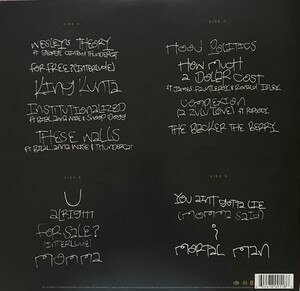 SIDE A
WESLEY'S THEORY
FT GEORGE CLINTON & THUNDERCAT
FOR FREE? (INTERLUDE)
KING KUNTA
INSTITUTIONALIZED
FT BILAL ANNA WISE & SNOOP DOGG
THESE WALLS
FT BILAL ANNA WISE & THUNDERCAT
SIDE B
U
ALRIGHT
FOR SALE?
(INTERLUDE)
MOMMA
SIDE C
HOOD POLITICS
HOW MUCH
A DOLLAR COST
FT JAMES FAUNTLEROY & RONALD ISLEY
COMPLEXION
(A ZULU LOVE) FT RAPSODY
THE BLACKER THE BERRY
SIDE D
YOU AINT GOTTA LIE
(MOMMA SAID)
i
MORTAL MAN